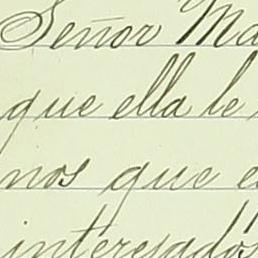 Señor Ma
que ella le
nos que e
interesados